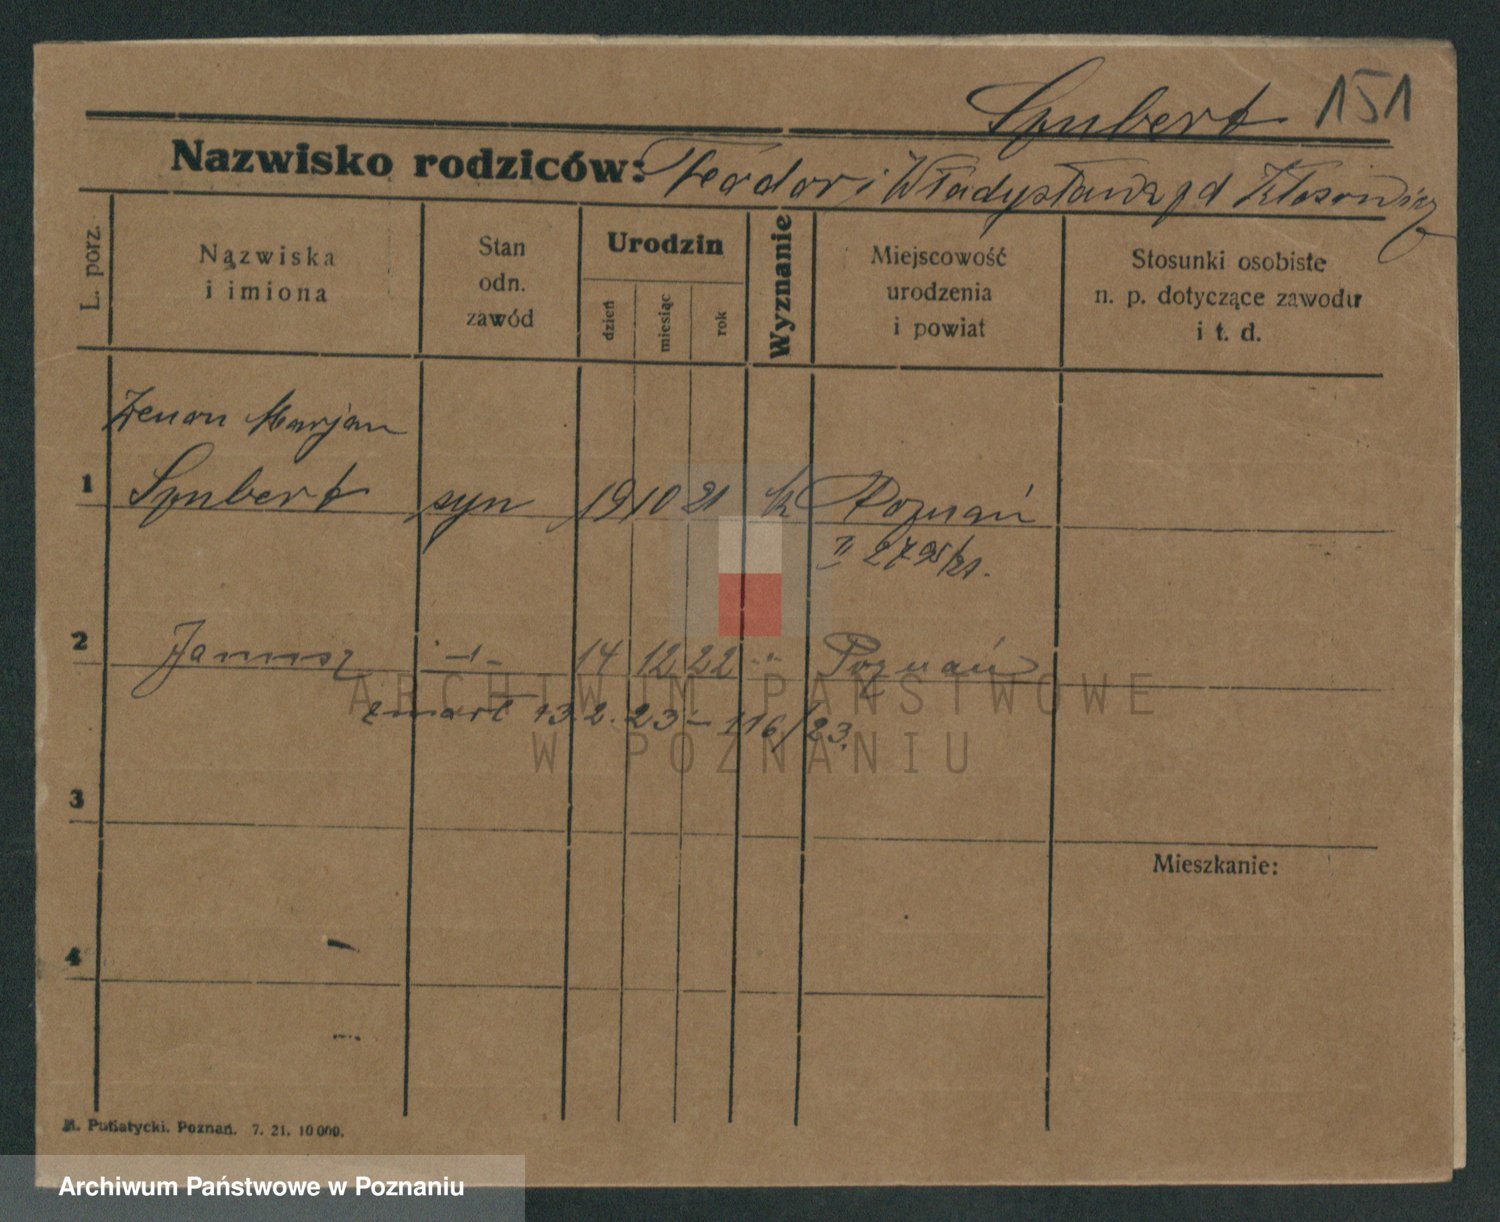 Spubert 151
Nazwisko rodziców: Teodor i Władysława z d
L. porz.
Nazwiska
i imiona
Stan
odn.
zawód
Urodzin
dzień
miesiąc
rok
Wyznanie
Miejscowość
urodzenia
i powiat
Stosunki osobiste
n. p. dotyczące zawodu
i t. d.
Zenon Marjan
1 Spubert syn 19 10 21 k Poznań
II
2 Janusz -"- 14 12 22 " Poznań
zmarł 13.2.23 - 116/23.
3
Mieszkanie:
4
M. Putiatycki. Poznań. 7. 21. 10 000.
ARCHIWUM PAŃSTWOWE
W POZNANIU
Archiwum Państwowe w Poznaniu